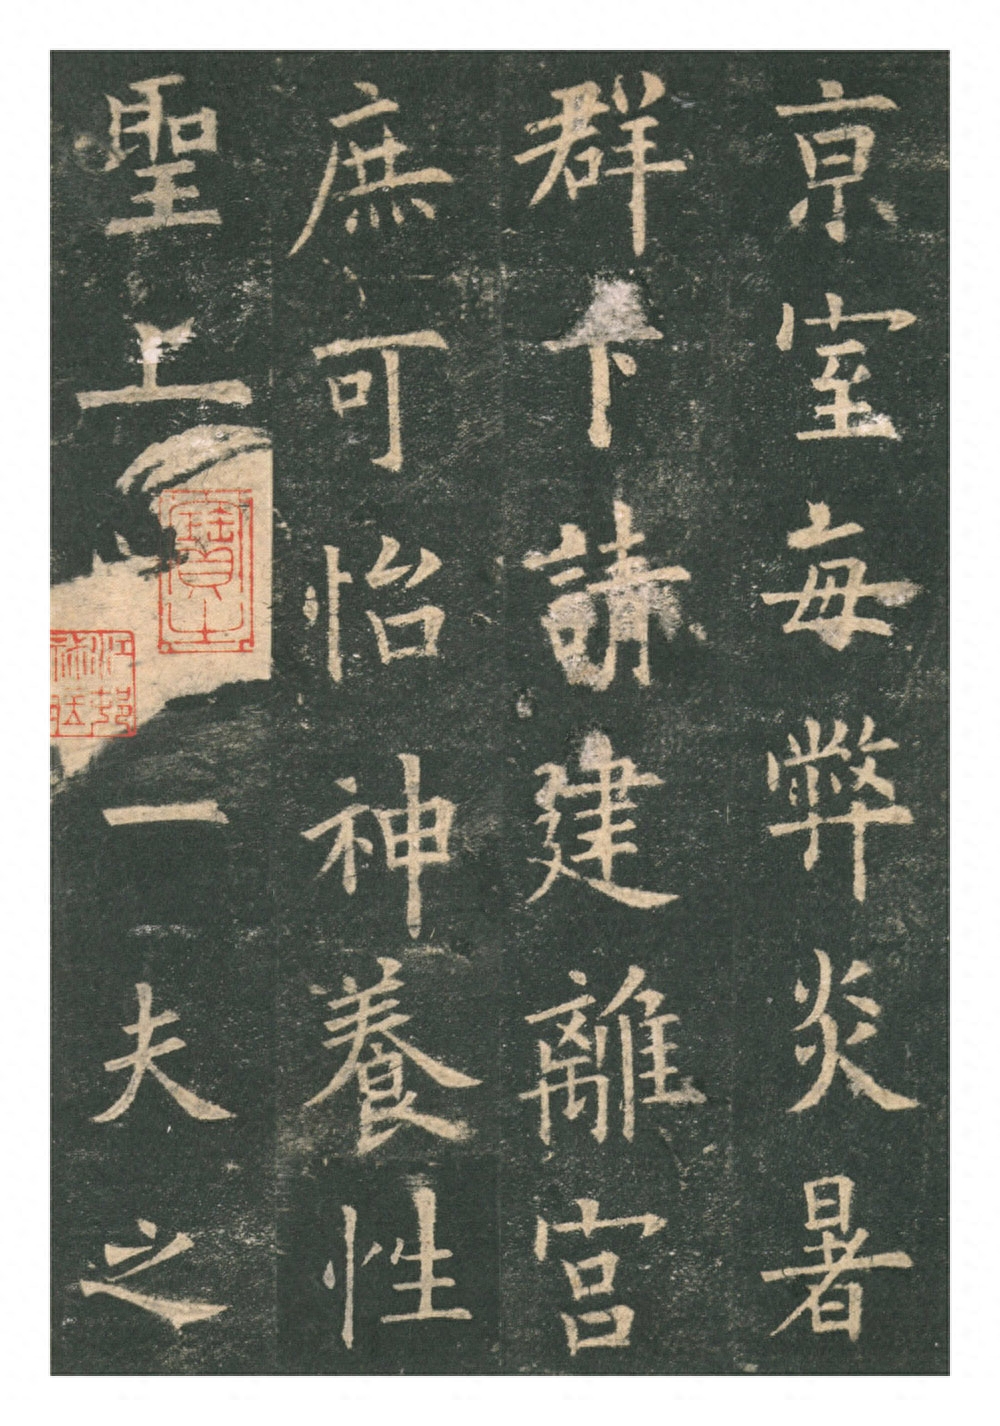 亰室每弊炎暑
群下請建離宮
庶可怡神養性
聖上
一夫之